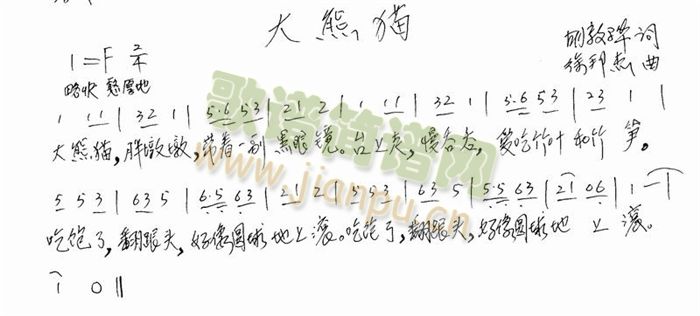 大熊猫
1=F 2/4
胡敦骅 词
徐邦杰 曲
略快 憨厚地
1 11 | 32 1 | 5·6 53 | 21 2 | 1 11 | 32 1 | 5·6 53 | 23 1 |
大熊猫，胖墩墩，带着一副黑眼镜。台上走，慢吞走，爱吃竹叶和竹笋。
5 53 | 63 5 | 6·5 63 | 21 2 | 5 53 | 63 5 | 5·5 63 | 21 06 | 1 — |
吃饱了，翻跟头，好像圆球地上滚。吃饱了，翻跟头，好像圆球地上滚。
1 0 ‖
歌谱简谱网
www.jianpu.cn